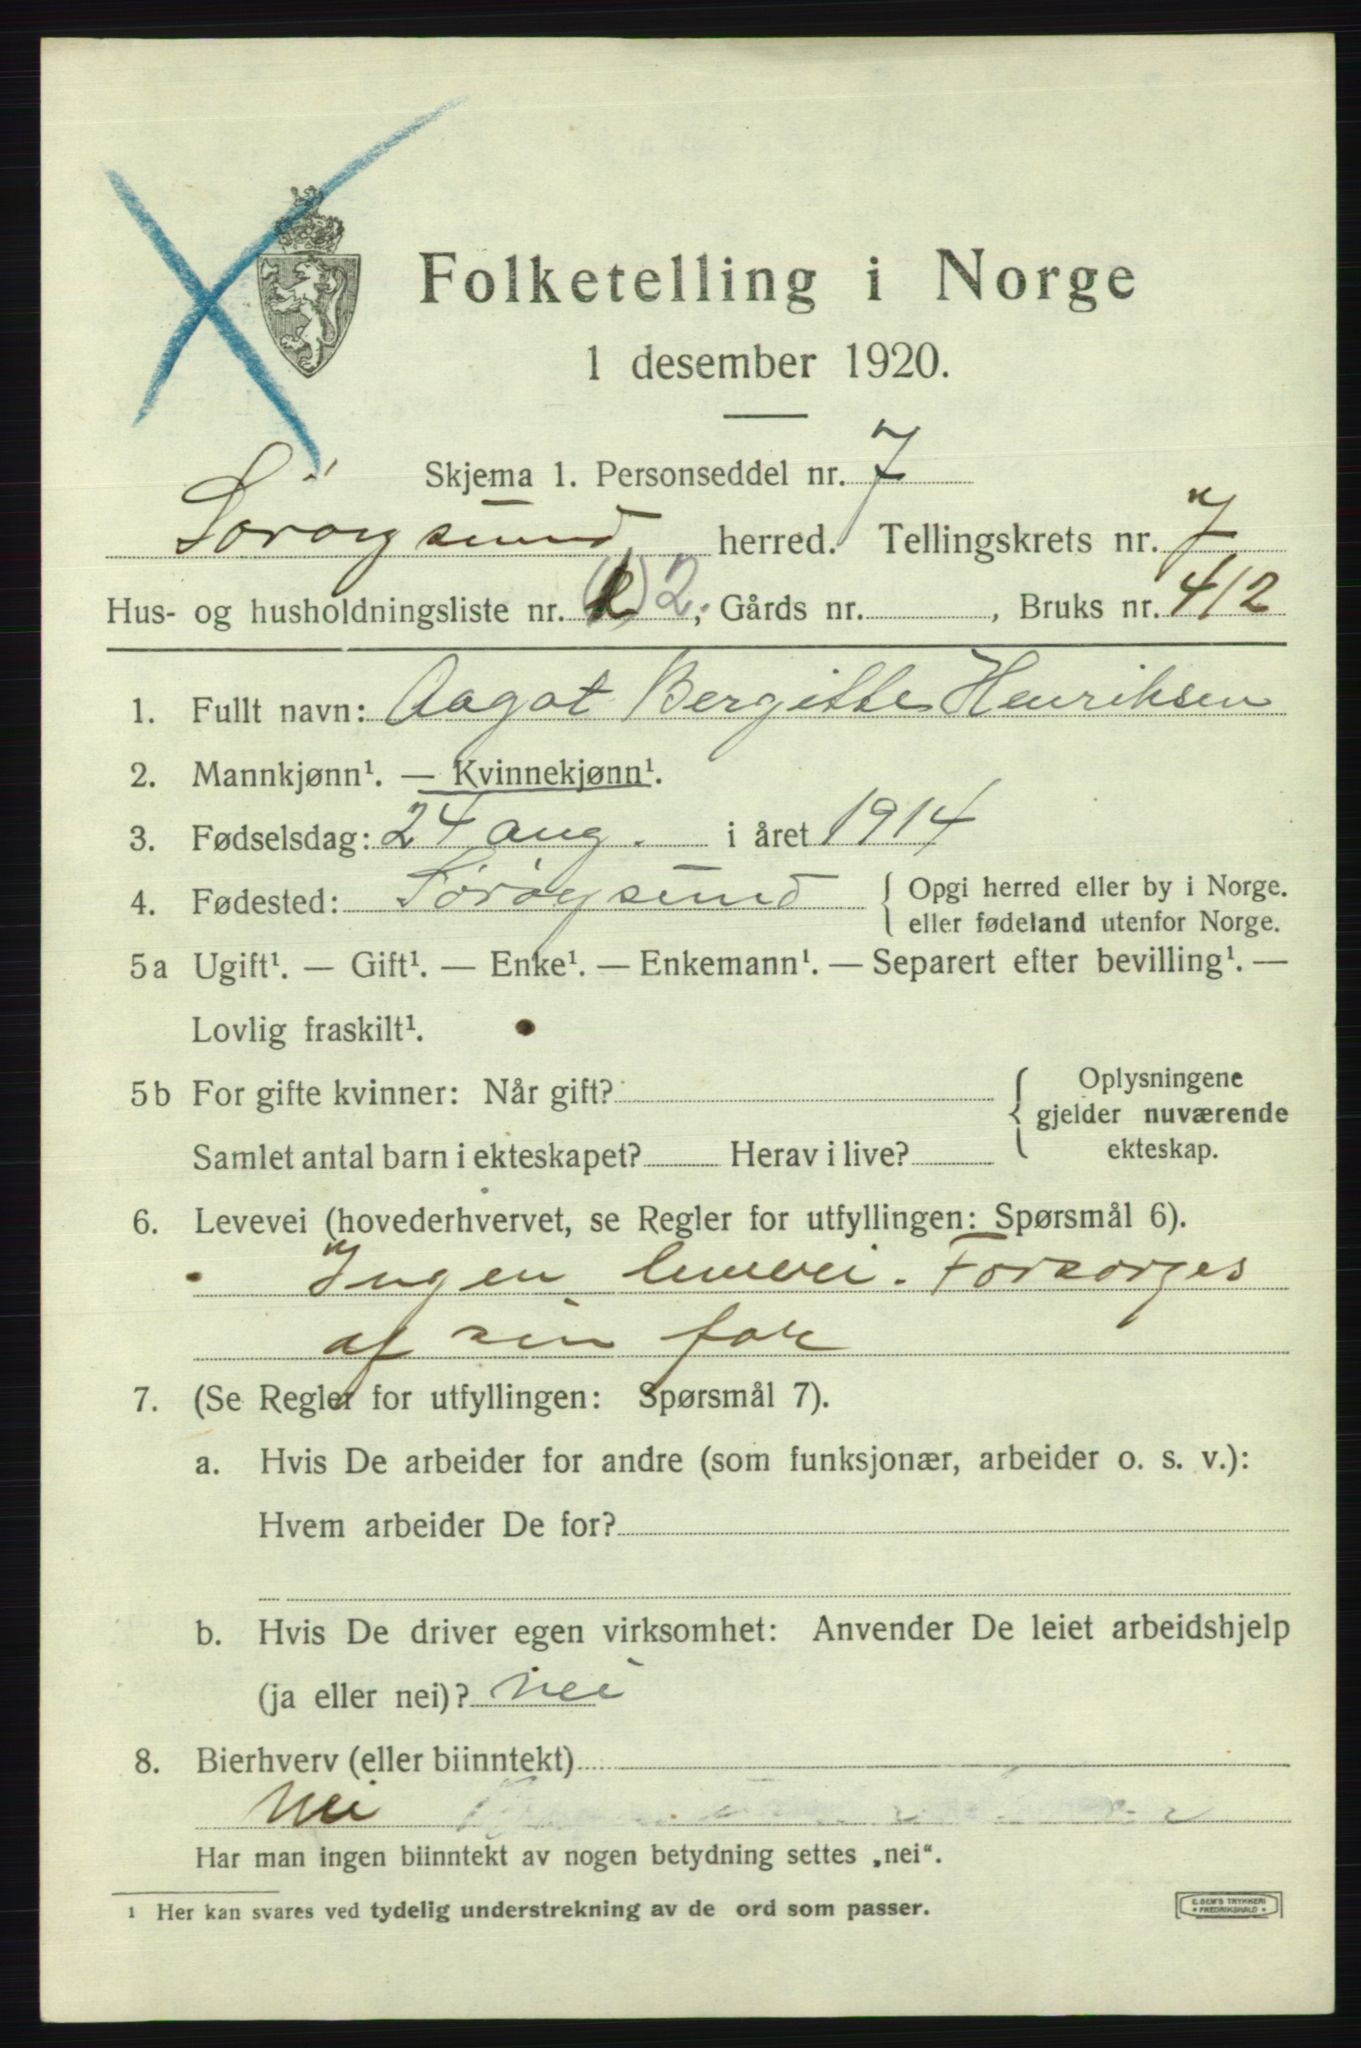 Folketelling i Norge
1 desember 1920.
Skjema 1. Personseddel nr. 7
Sörøysund herred. Tellingskrets nr. 7
Hus- og husholdningsliste nr. () 2; Gårds nr. , Bruks nr. 412
1. Fullt navn: Aagot Bergitte Henriksen
2. Mannkjønn¹. — Kvinnekjønn¹.
3. Fødselsdag: 24 aug. i året 1914
4. Fødested: Sørøysund { Opgi herred eller by i Norge.
eller fødeland utenfor Norge.
5a Ugift¹. — Gift¹. — Enke¹. — Enkemann¹. — Separert efter bevilling¹. —
Lovlig fraskilt¹.
5b For gifte kvinner: Når gift? { Oplysningene
gjelder nuværende
ekteskap.
Samlet antal barn i ekteskapet? Herav i live?
6. Levevei (hovederhvervet, se Regler for utfyllingen: Spørsmål 6).
Ingen levevei. Forsorges
af sin far
7. (Se Regler for utfyllingen: Spørsmål 7).
a. Hvis De arbeider for andre (som funksjonær, arbeider o. s. v.):
Hvem arbeider De for?
b. Hvis De driver egen virksomhet: Anvender De leiet arbeidshjelp
(ja eller nei)? Nei
8. Bierhverv (eller biinntekt)
Nei
Har man ingen biinntekt av nogen betydning settes „nei“.
¹ Her kan svares ved tydelig understrekning av de ord som passer.
E. SEM'S TRYKKERI
• FREDRIKSHALD •